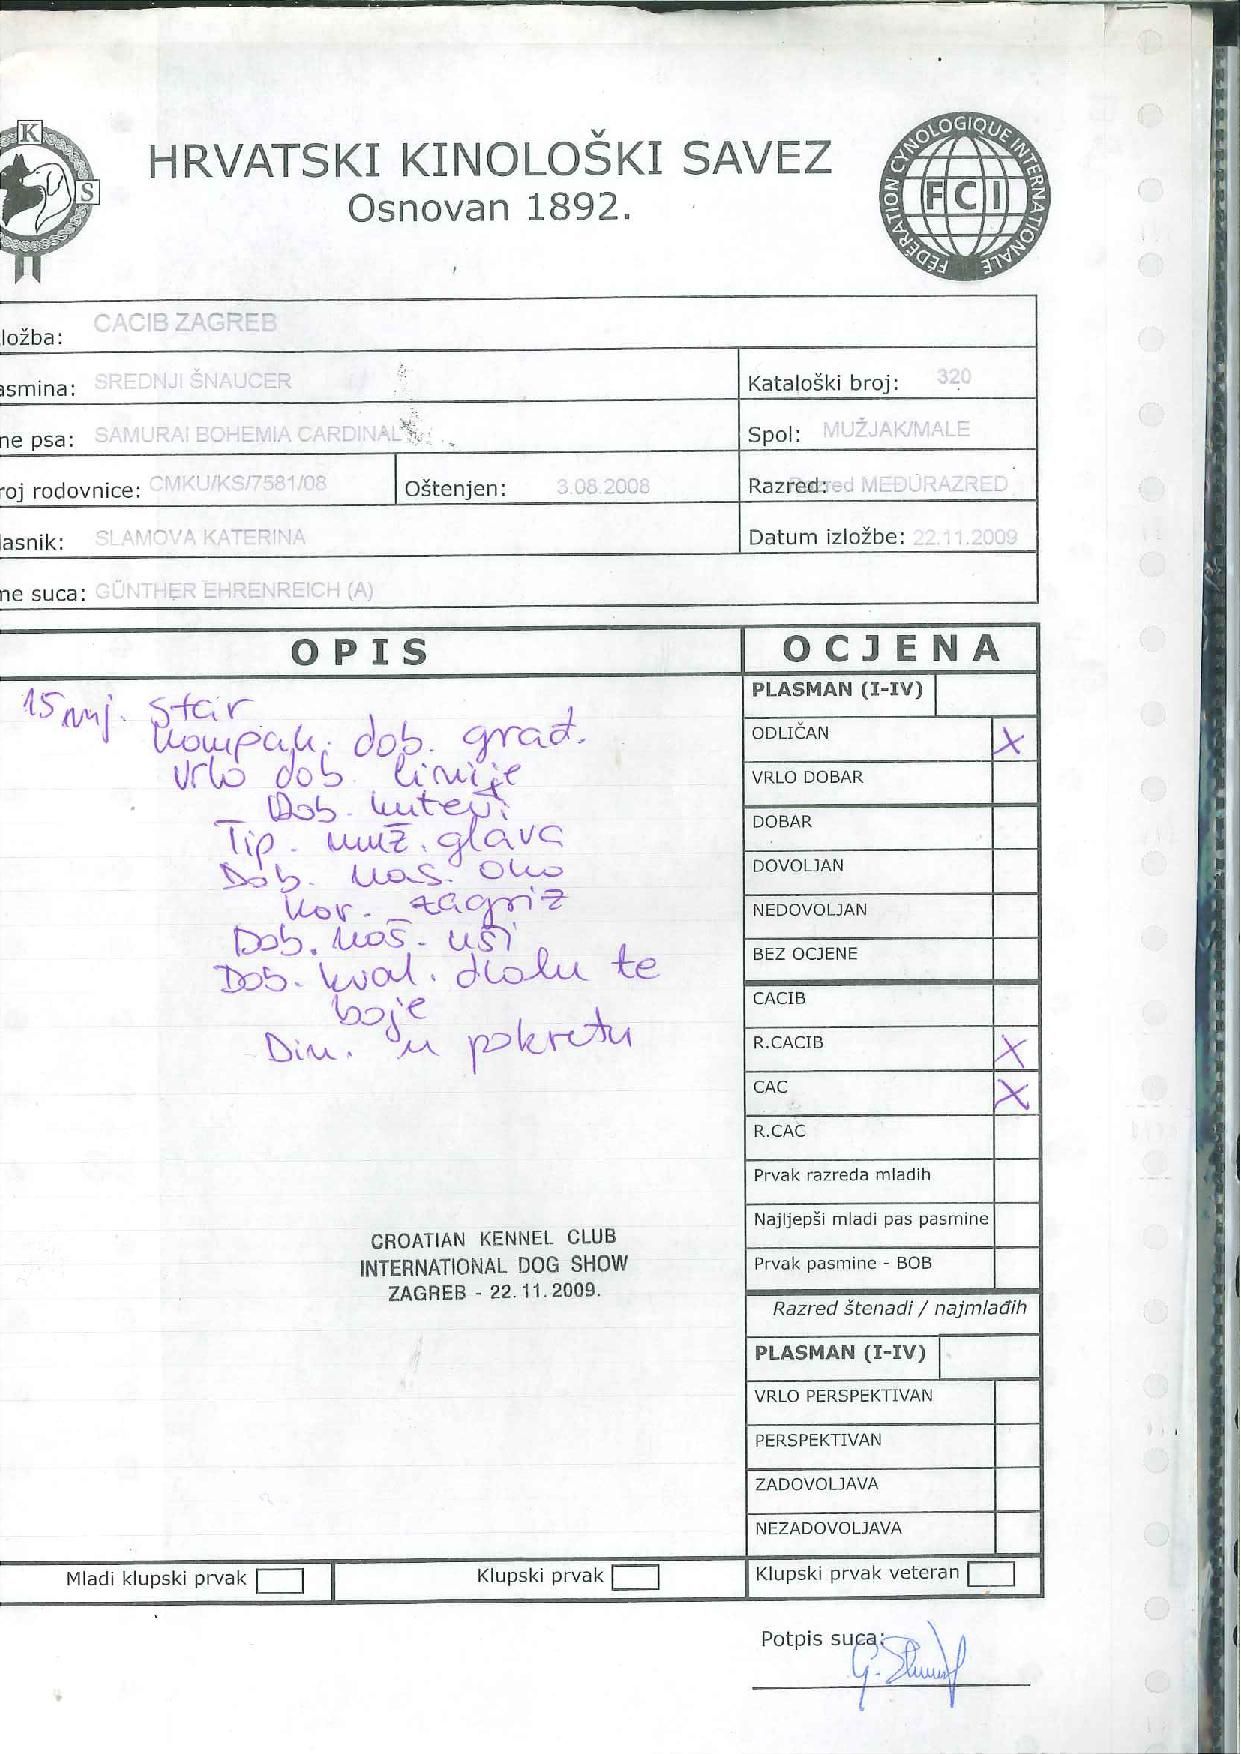 K
S
HRVATSKI KINOLOŠKI SAVEZ
Osnovan 1892.
FÉDÉRATION CYNOLOGIQUE INTERNATIONALE
FCI
ložba: CACIB ZAGREB
asmina: SREDNJI ŠNAUCER
Kataloški broj: 320
ne psa: SAMURAI BOHEMIA CARDINAL
Spol: MUŽJAK/MALE
roj rodovnice: CMKU/KS/7581/08
Oštenjen: 3.08.2008
Razred: MEĐURAZRED
lasnik: SLAMOVA KATERINA
Datum izložbe: 22.11.2009
ne suca: GÜNTHER EHRENREICH (A)
OPIS
OCJENA
15 mj. star
kompak. dob. građ.
vrlo dob. linije
Dob. kutevi
Tip. muž. glava
Dob. oko
kor. zagriz
Dob. noš. uši
Dob. kval. dlake te
boje
Din. u pokretu
PLASMAN (I-IV)
ODLIČAN X
VRLO DOBAR
DOBAR
DOVOLJAN
NEDOVOLJAN
BEZ OCJENE
CACIB
R.CACIB X
CAC X
R.CAC
Prvak razreda mladih
Najljepši mladi pas pasmine
Prvak pasmine - BOB
Razred štenadi / najmlađih
PLASMAN (I-IV)
VRLO PERSPEKTIVAN
PERSPEKTIVAN
ZADOVOLJAVA
NEZADOVOLJAVA
CROATIAN KENNEL CLUB
INTERNATIONAL DOG SHOW
ZAGREB - 22.11.2009.
Mladi klupski prvak
Klupski prvak
Klupski prvak veteran
Potpis suca: